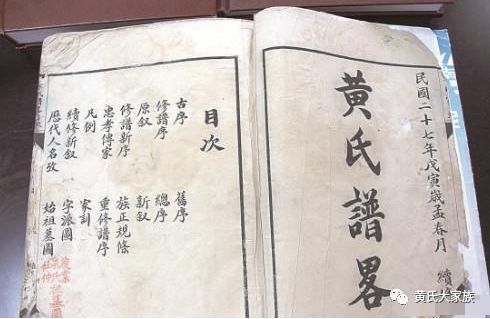 民國二十七年戊寅歲孟春月 續
黃氏譜畧
目次
古序 舊序
修譜序 總序
原叙 新叙
修譜新序 族正規條
忠孝傳家 重修譜序
凡例 家訓
續修新叙 字派圖
歷代人名攷 始祖墓圖
黄氏大家族